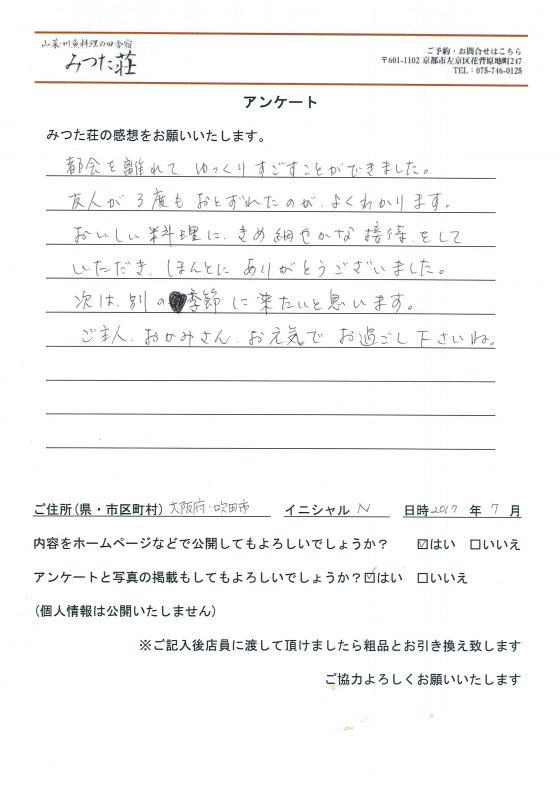 山菜・川魚料理の田舎宿
みつた荘
ご予約・お問合せはこちら
〒601-1102 京都市左京区花背原地町247
TEL：075-746-0125
アンケート
みつた荘の感想をお願いいたします。
都会を離れて ゆっくりすごすことができました。
友人が3度もおとずれたのが、よくわかります。
おいしい料理に、きめ細やかな接待をして
いただき、ほんとにありがとうございました。
次は、別の季節に来たいと思います。
ご主人、おかみさん、お元気でお過ごし下さいね。
ご住所(県・市区町村) 大阪府・吹田市 イニシャル N 日時2017 年 7 月
内容をホームページなどで公開してもよろしいでしょうか？ ☑はい □いいえ
アンケートと写真の掲載もしてもよろしいでしょうか？☑はい □いいえ
(個人情報は公開いたしません)
※ご記入後店員に渡して頂けましたら粗品とお引き換え致します
ご協力よろしくお願いいたします